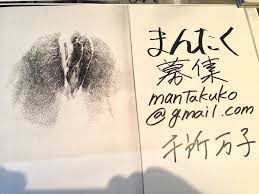 まんたく
募集
mantakuko
@gmail.com
千所万子